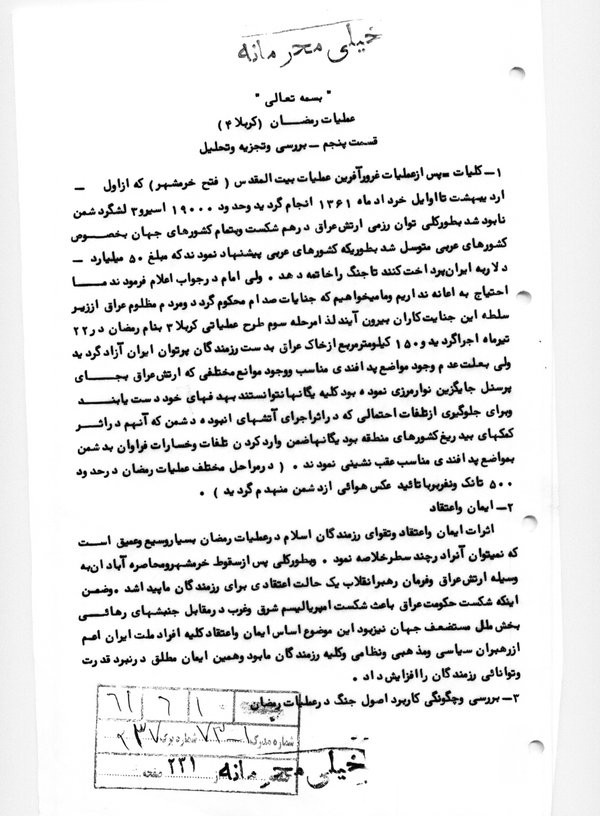 خیلی محرمانه
" بسمه تعالی "
عملیات رمضان (کربلا ۴)
قسمت پنجم – بررسی و تجزیه و تحلیل
۱– کلیات = پس از عملیات غرورآفرین عملیات بیت المقدس ( فتح خرمشهر) که از اول –
اردیبهشت تا اوایل خرداد ماه ۱۳۶۱ انجام گردید و حدود ۱۹۰۰۰ اسیر و ۳ لشگر دشمن
نابود شد بطور کلی توان رزمی ارتش عراق درهم شکست و بتمام کشورهای جهان بخصوص
کشورهای عربی متوسل شد بطوریکه کشورهای عربی پیشنهاد نمودند که مبلغ ۵۰ میلیارد –
دلار به ایران پرداخت کنند تا جنگ را خاتمه دهد . ولی امام در جواب اعلام فرمودند ما
احتیاج به اعانه نداریم و ما میخواهیم که جنایات صدام محکوم گردد و مردم مظلوم عراق از زیر
سلطه این جنایت کاران بیرون آیند لذا مرحله سوم طرح عملیاتی کربلا ۳ بنام رمضان در ۲۲
تیرماه اجرا گردید و ۱۵۰ کیلومتر مربع از خاک عراق بدست رزمندگان پرتوان ایران آزاد گردید
ولی بعلت عدم وجود مواضع پدافندی مناسب و وجود موانع مختلفی که ارتش عراق بجای
پرسنل جایگزین نوار مرزی نموده بود کلیه یگانها نتوانستند بهدفهای خود دست یابند
و برای جلوگیری از تلفات احتمالی که در اثر اجرای آتشهای انبوده دشمن که آنهم در اثر
کمکهای بیدریغ کشورهای منطقه بود یگانها ضمن وارد کردن تلفات و خسارات فراوان بدشمن
بمواضع پدافندی مناسب عقب نشینی نمودند . ( در مراحل مختلف عملیات رمضان در حدود
۵۰۰ تانک و نفربر با تائید عکس هوائی از دشمن منهدم گردید ) .
۲– ایمان و اعتقاد
اثرات ایمان و اعتقاد و تقوای رزمندگان اسلام در عملیات رمضان بسیار وسیع و عمیق است
که نمیتوان آنرا در چند سطر خلاصه نمود . و بطور کلی پس از سقوط خرمشهر و محاصره آبادان به
وسیله ارتش عراق و فرمان رهبر انقلاب یک حالت اعتقادی برای رزمندگان ما پیدا شد . و ضمن
اینکه شکست حکومت عراق باعث شکست امپریالیسم شرق و غرب در مقابل جنبشهای رهائی
بخش ملل مستضعف جهان نیز بود این موضوع اساس ایمان و اعتقاد کلیه افراد ملت ایران اعم
از رهبران سیاسی و مذهبی و نظامی و کلیه رزمندگان ما بود و همین ایمان مطلق در نبرد قدرت
و توانائی رزمندگان را افزایش داد .
۳– بررسی و چگونگی کاربرد اصول جنگ در عملیات رمضان
۶۱ ۶ ۱۰
شماره مدرک شماره برگ
۲۲۱ صفحه
خیلی محرمانه